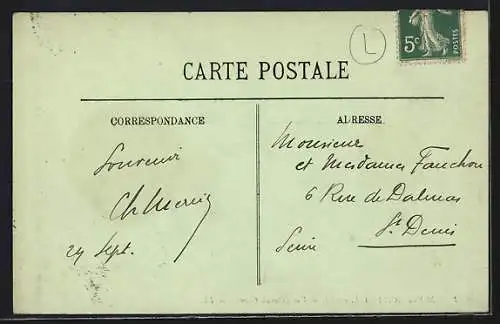 5c
POSTES
L
CARTE POSTALE
CORRESPONDANCE
ADRESSE
Souvenir
24 Sept.
Monsieur
et Madame Fauchon
6 Rue de Dalmas
St Denis
Seine